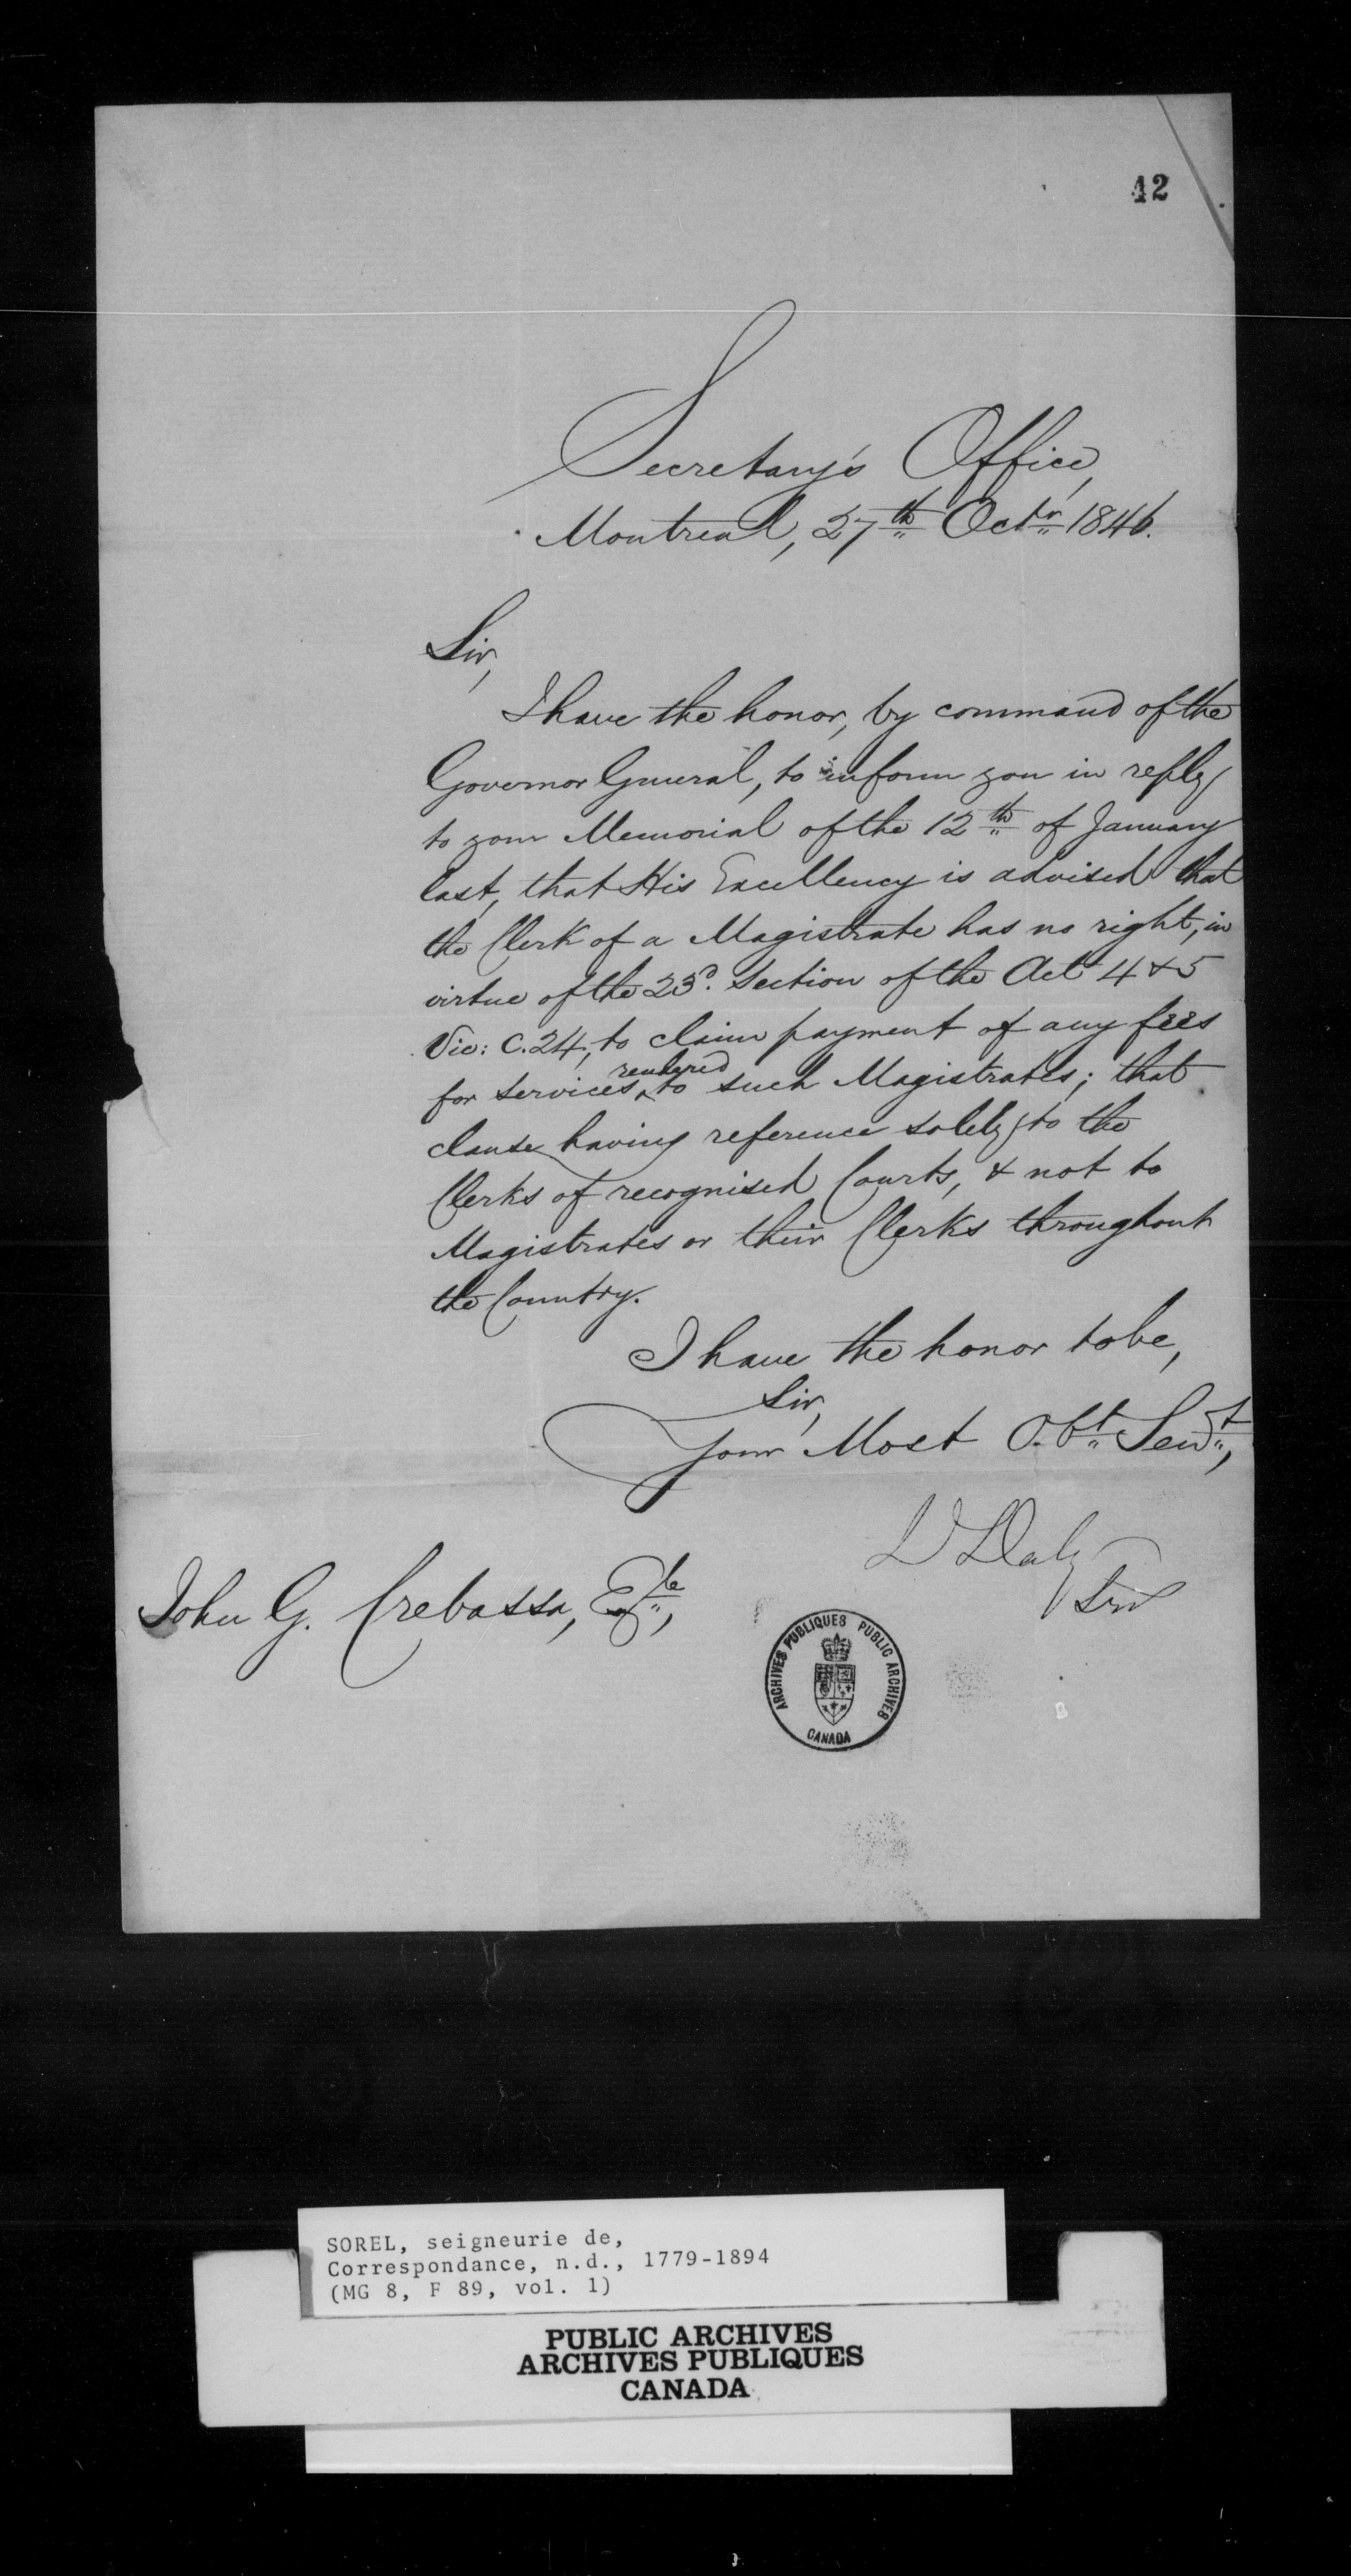 42
Secretary's Office,
Montreal, 27th Octr 1846.
Sir,
I have the honor, by command of the
Governor General, to inform you in reply
to your Memorial of the 12th of January
last, that His Excellency is advised that
the Clerk of a Magistrate has no right, in
virtue of the 23d. Section of the Act 4 & 5
Vic: C. 24, to claim payment of any fees
for services rendered to such Magistrates; that
clause having reference solely to the
Clerks of recognised Courts, & not to
Magistrates or their Clerks throughout
the Country.
I have the honor to be,
Sir,
Your Most Obt Servt,
D Daly
Secy
John G. Crebassa, Esqre,
ARCHIVES PUBLIQUES PUBLIC ARCHIVES
CANADA
SOREL, seigneurie de,
Correspondance, n.d., 1779-1894
(MG 8, F 89, vol. 1)
PUBLIC ARCHIVES
ARCHIVES PUBLIQUES
CANADA